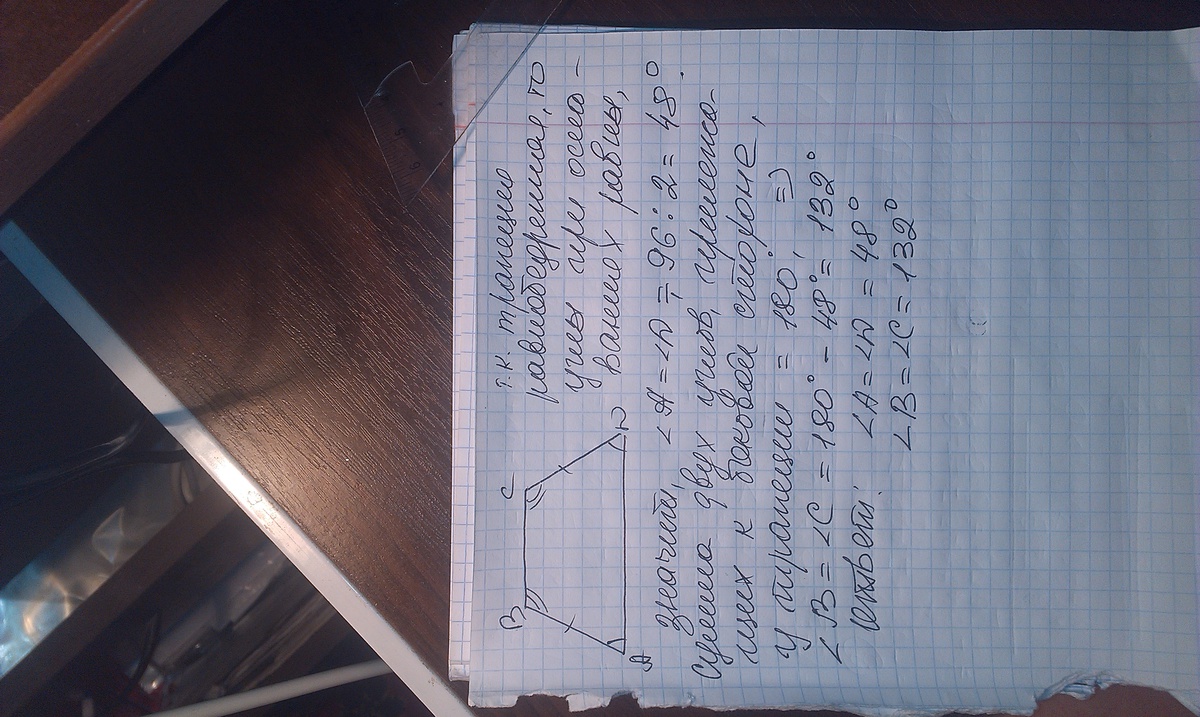 B
C
A
D
т.к. трапеция
равнобедренная, то
углы при осно-
ваниях равны,
значит, ∠A = ∠D = 96 : 2 = 48°.
сумма двух углов, прилежа-
щих к боковой стороне,
у трапеции = 180, =>
∠B = ∠C = 180° - 48° = 132°
Ответ: ∠A = ∠D = 48°
∠B = ∠C = 132°